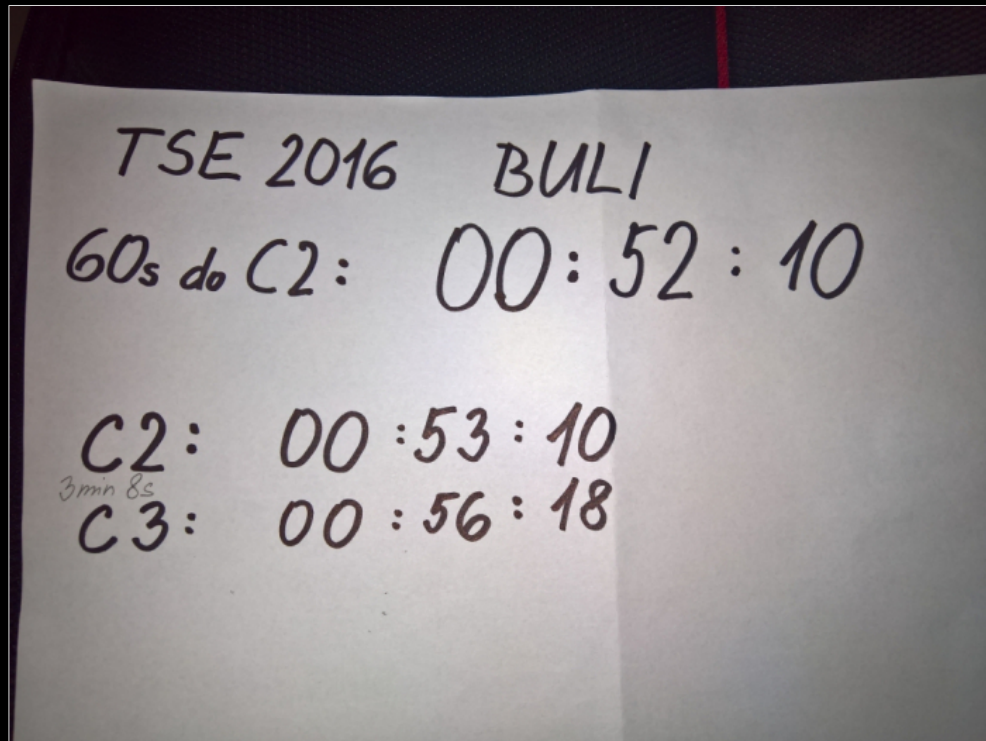 TSE 2016 BULI
60s do C2: 00:52:10
C2: 00:53:10
3min 8s
C3: 00:56:18